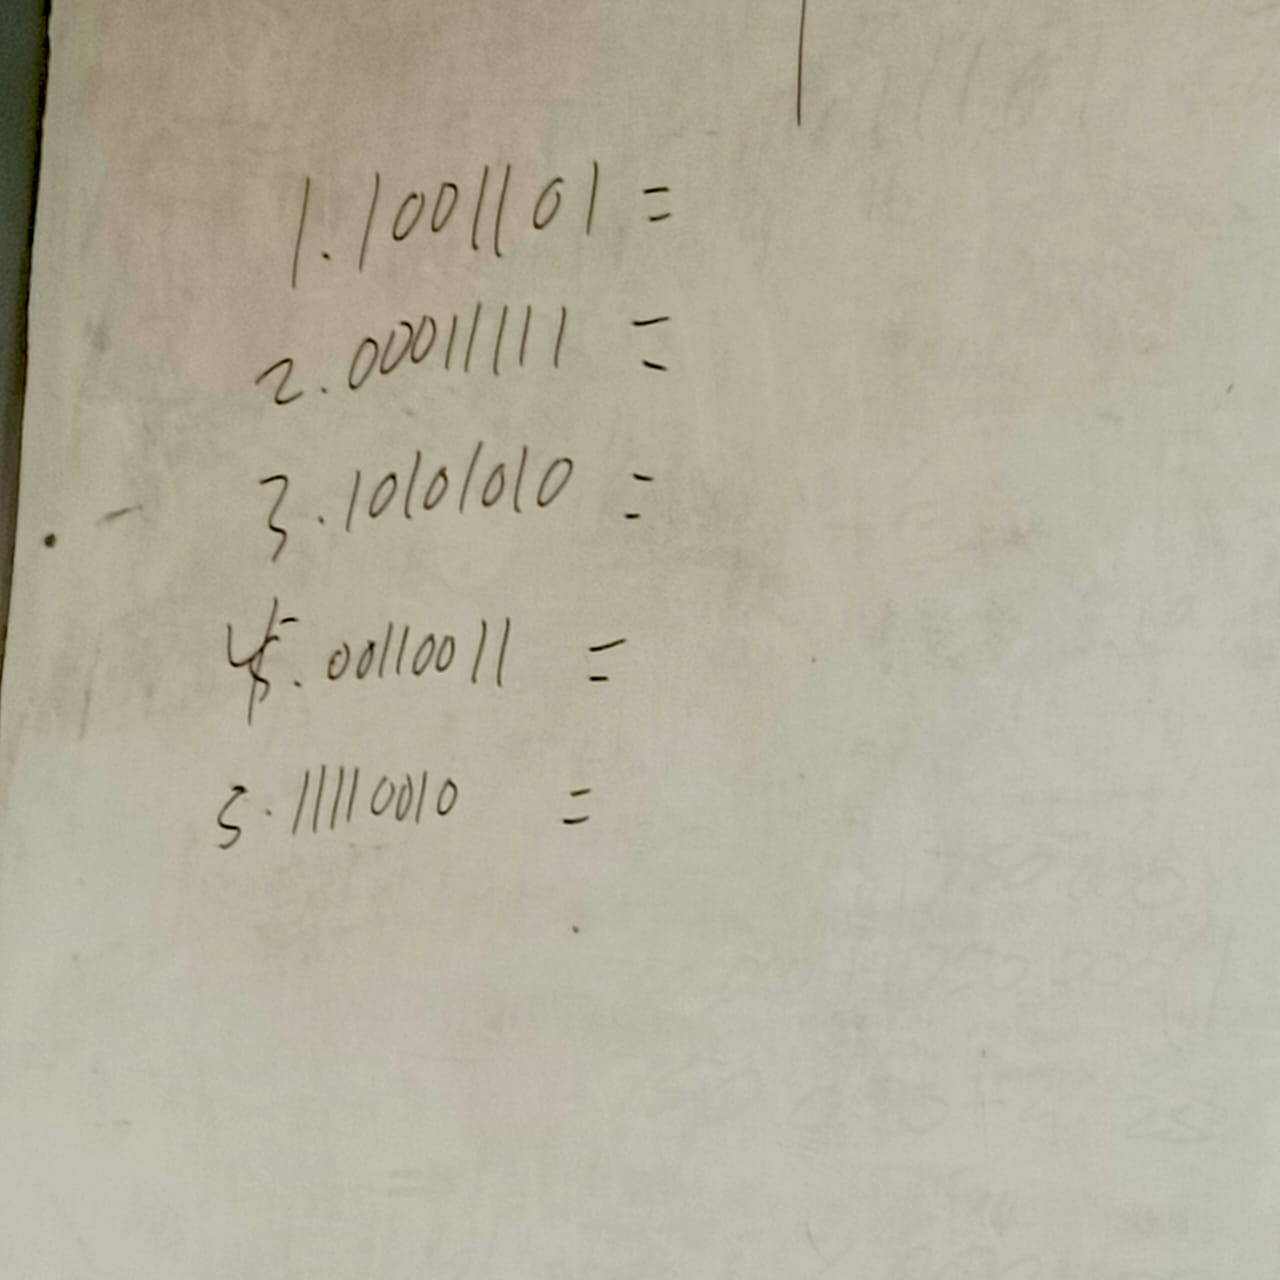 1.10011101 =
2.00011111 =
3.10101010 =
4.00110011 =
5.11110010 =